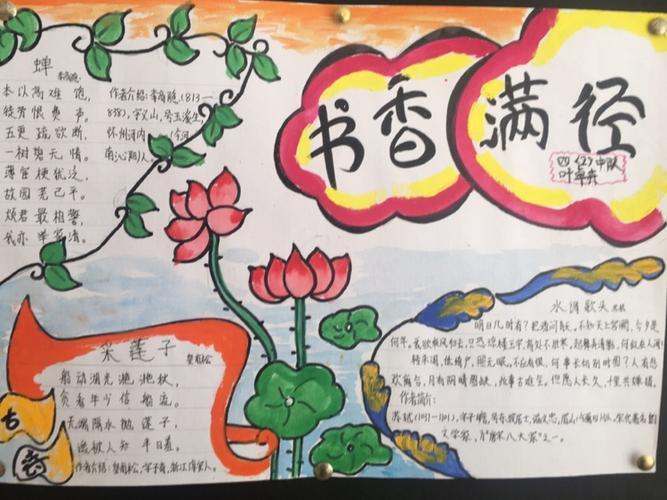 书香满径
四(2)中队
蝉
李商隐
本以高难饱,
徒劳恨费声。
五更疏欲断,
一树碧无情。
薄宦梗犹泛,
故园芜已平。
烦君最相警,
我亦举家清。
作者介绍:李商隐,(813—
858),字义山,号玉溪生,
怀州河内
南沁阳)人。
采莲子
皇甫松
船动湖光滟滟秋,
贪看年少信船流。
无端隔水抛莲子,
遥被人知半日羞。
作者介绍:皇甫松,字子奇,浙江淳安人。
古
水调歌头
苏轼
明月几时有?把酒问青天,不知天上宫阙,今夕是
何年,我欲乘风归去,又恐琼楼玉宇,高处不胜寒,起舞弄清影,何似在人间!
转朱阁,低绮户,照无眠,不应有恨,何事长别时圆?人有悲
欢离合,月有阴晴圆缺,此事古难全,但愿人长久,千里共婵娟。
作者简介:
苏轼(1037—1101),字子瞻,号东坡居士,谥文忠,眉山
文学家,